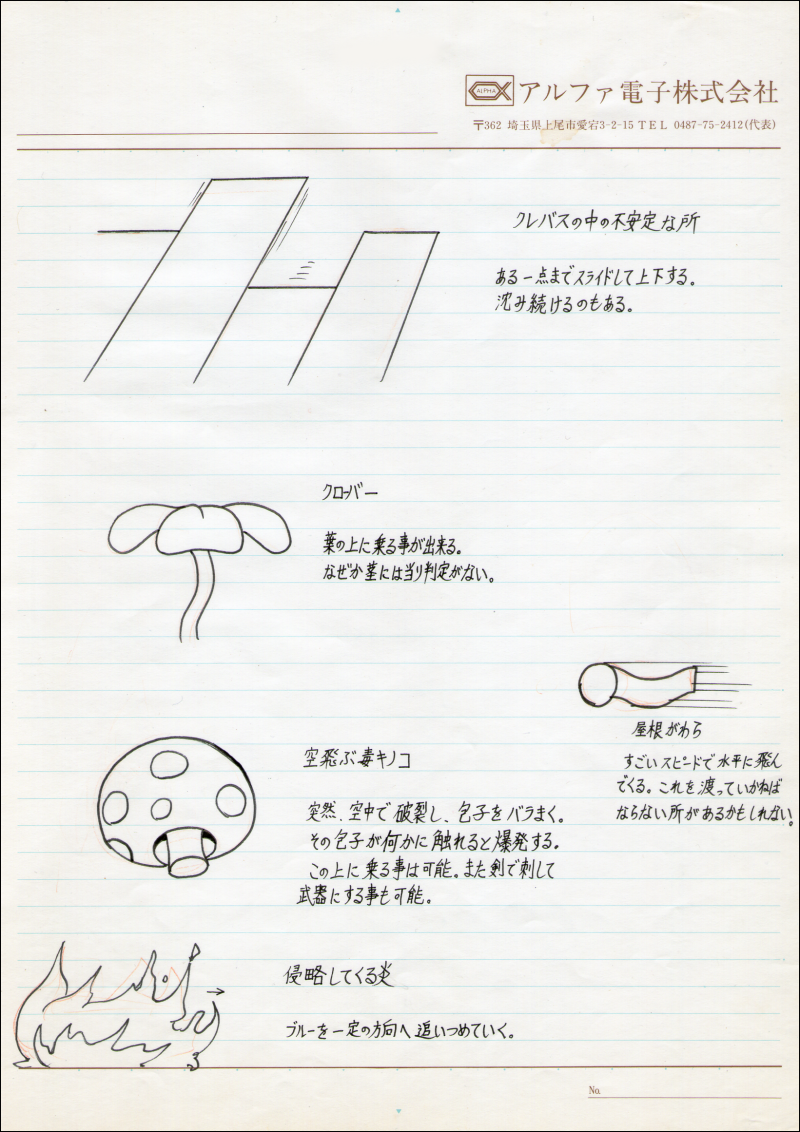 ALPHA
アルファ電子株式会社
〒362 埼玉県上尾市愛宕3-2-15 TEL 0487-75-2412(代表)
クレバスの中の不安定な所
ある一点までスライドして上下する。
沈み続けるのもある。
クローバー
葉の上に乗る事が出来る。
なぜか茎には当り判定がない。
屋根がわら
すごいスピードで水平に飛ん
でくる。これを渡っていかねば
ならない所があるかもしれない。
空飛ぶ毒キノコ
突然、空中で破裂し、包子をバラまく。
その包子が何かに触れると爆発する。
この上に乗る事は可能。また剣で刺して
武器にする事も可能。
侵略してくる炎
ブルーを一定の方向へ追いつめていく。
No.